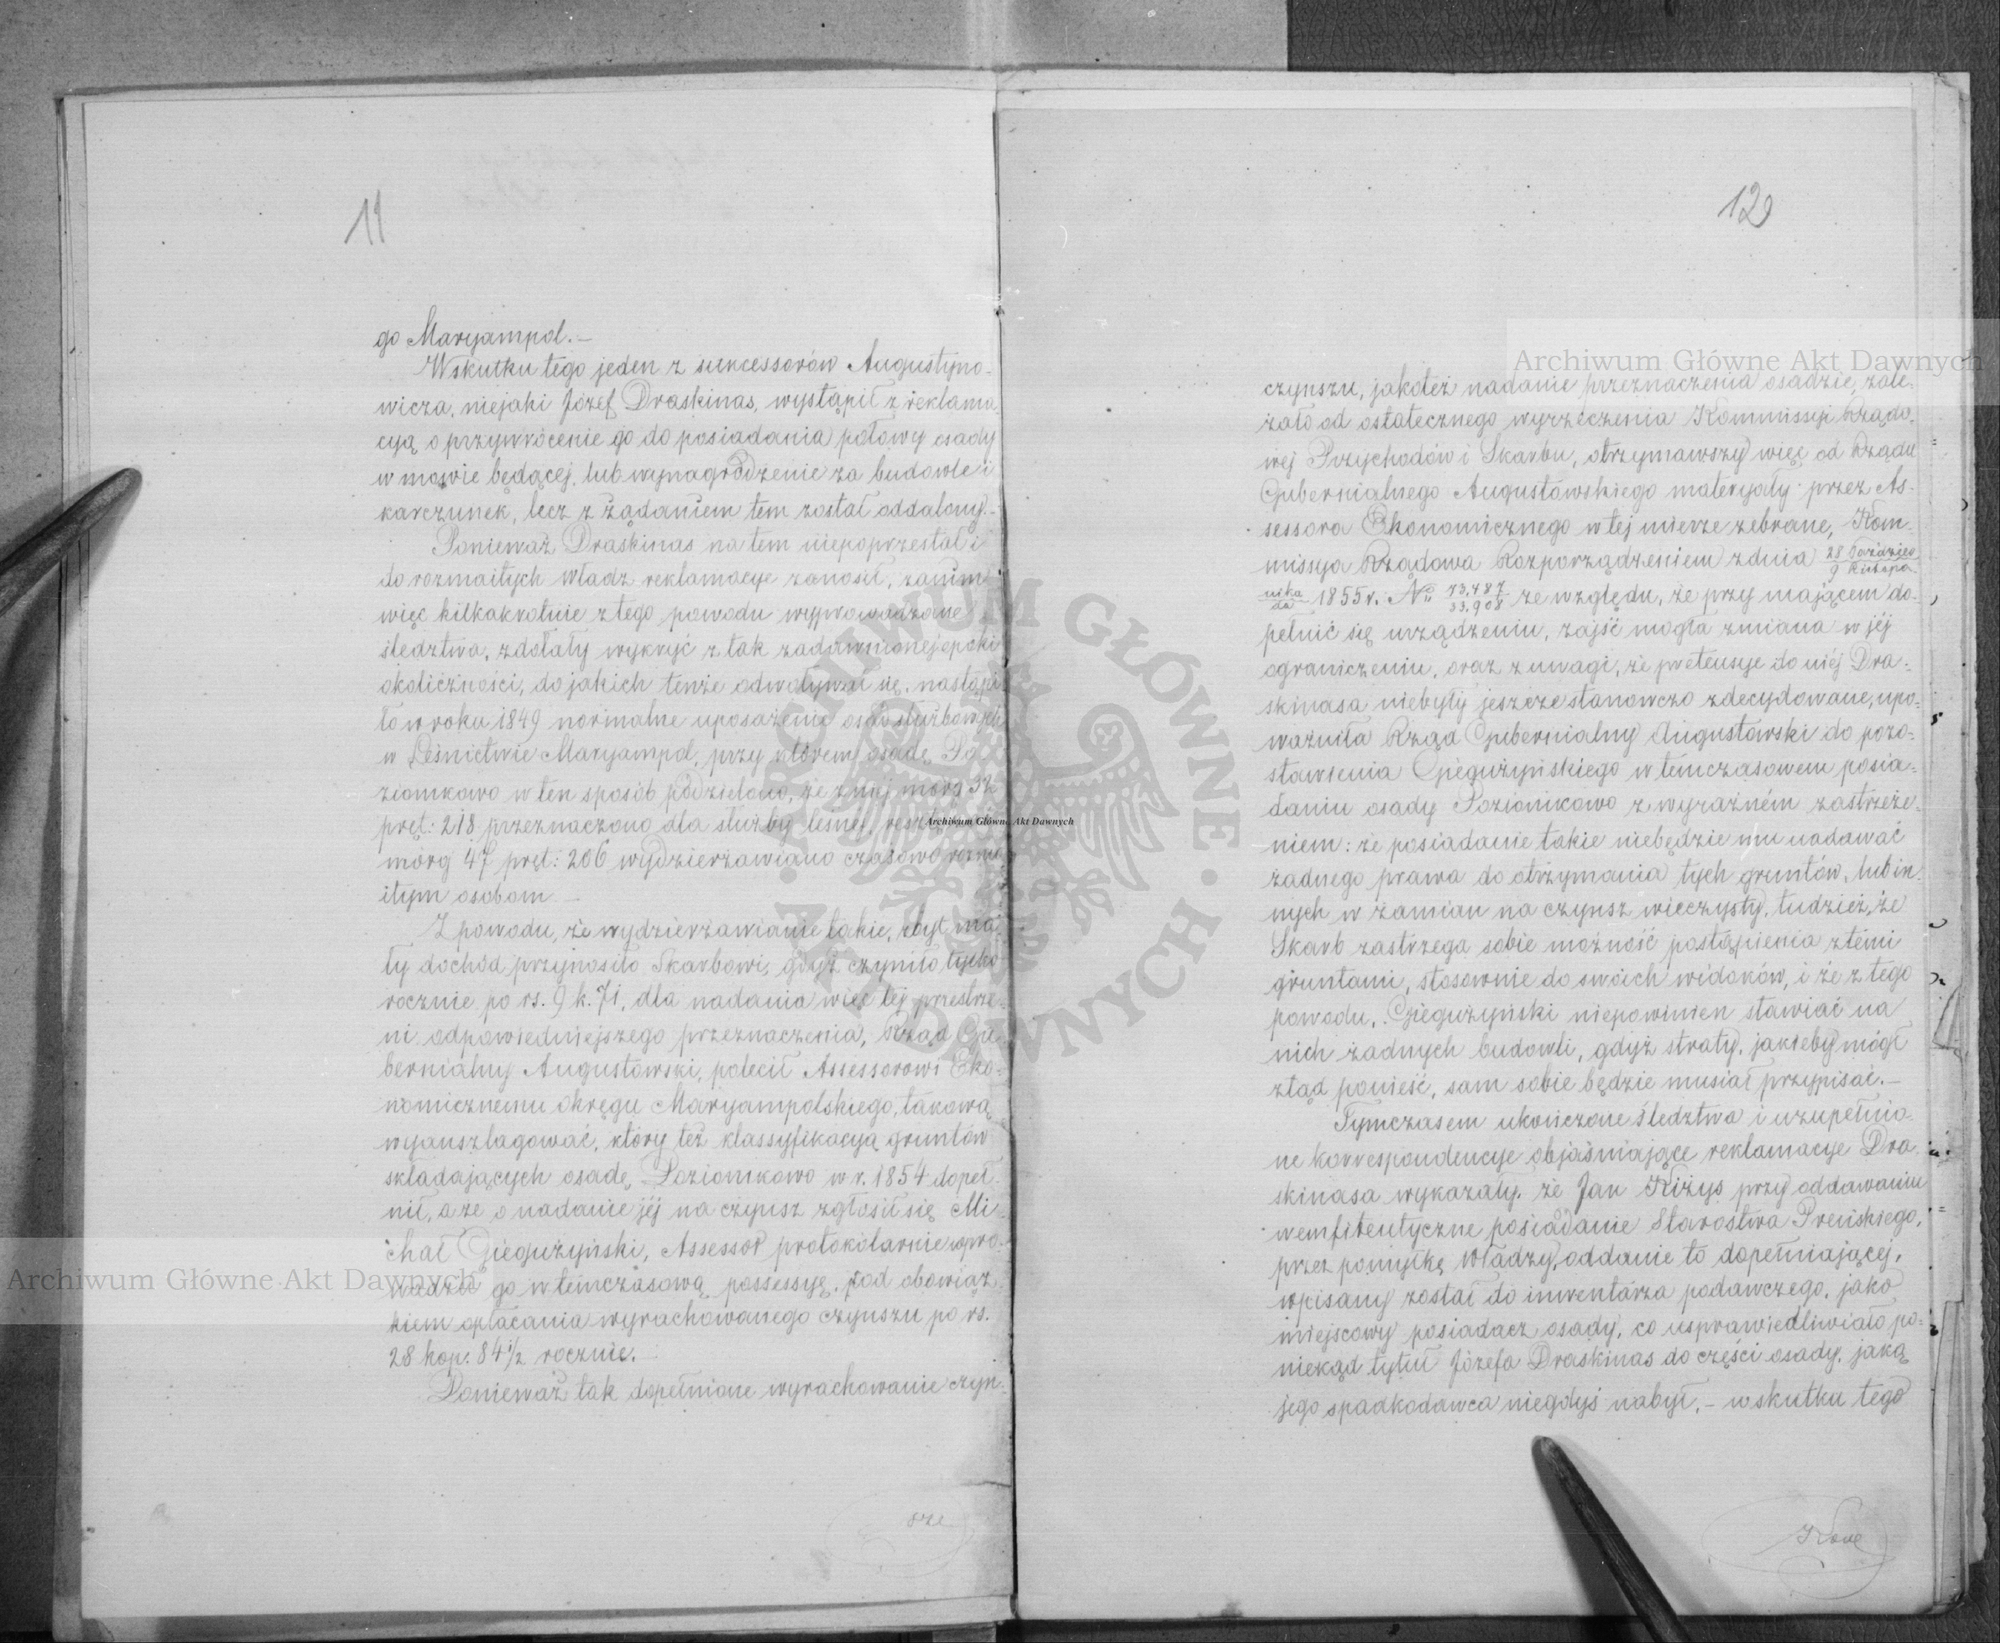 11
go Maryampol.—
Wskutku tego jeden z sukcessorów Augustyno-
wicza, niejaki Józef Draskinas, wystąpił z reklama
cyą o przywrócenie go do posiadania połowy osady
w mowie będącej, lub wynagrodzenie za budowle i
karczunek, lecz z żądaniem tem został oddalony.—
Ponieważ Draskinas na tem niepoprzestał i
do rozmaitych Władz reklamacye zanosił, zanim
więc kilkakrotnie z tego powodu wyprowadzone
śledztwa, zdołały wykryć z tak zadawnionej epoki
okoliczności, do jakich tenże odwoływał się, nastąpi
ło w roku 1849 normalne uposażenie osad służbowych
w Leśnictwie Maryampol, przy którem osadę Po
ziomkowo w ten sposób podzielono, że z niej morg 32
pręt: 218 przeznaczono dla służby leśnej, resztę
mórg 47 pręt: 206 wydzierżawiano czasowo rozma
itym osobom —
Z powodu, że wydzierżawianie takie, zbyt ma
ły dochód przynosiło Skarbowi, gdyż czyniło tylko
rocznie po rs. 9 k. 71, dla nadania więc tej przestrze-
ni odpowiedniejszego przeznaczenia, Rząd Gu
bernialny Augustowski, polecił Assessorowi Eko-
nomicznemu Okręgu Maryampolskiego, takową
wyanszlagować, który też klassyfikacyą gruntów
składających osadę Poziomkowo w r. 1854 dopeł-
nił, a że o nadanie jéj na czynsz zgłosił się Mi-
chał Giegużyński, Assessor protokólarnie wpro-
wadził go w tymczasową possessyę, pod obowiąz
kiem opłacania wyrachowanego czynszu po rs.
28 kop: 84 1/2 rocznie.—
Ponieważ tak dopełnione wyrachowanie czyn-
sze
12
czynszu, jakoteż nadanie przeznaczenia osadzie, zale-
żało od ostatecznego wyrzeczenia Kommissyi Rządo-
wej Przychodów i Skarbu, otrzymawszy więc od Rządu
Gubernialnego Augustowskiego materyały przez As-
sessora Ekonomicznego w tej mierze zebrane, Kom-
missya Rządowa Rozporządzeniem z dnia 28 Paździer/9 Listopa
nika/da 1855 r. No 73,487/33,908 ze względu, że przy mającem do-
pełnić się urządzeniu, zajść mogła zmiana w jéj
ograniczeniu, oraz z uwagi, że pretensye do niéj Dra-
skinasa niebyły jeszcze stanowczo zdecydowane, upo-
ważniła Rząd Gubernialny Augustowski do pozo-
stawienia Giegużyńskiego w tymczasowem posia-
daniu osady Poziomkowo z wyraźném zastrzeże-
niem: że posiadanie takie niebędzie mu nadawać
żadnego prawa do otrzymania tych gruntów, lub in-
nych w zamian na czynsz wieczysty, tudzież, że
Skarb zastrzega sobie możność postąpienia z temi
gruntami, stosownie do swoich widoków, i że z tego
powodu, Giegużyński niepowinien stawiać na
nich żadnych budowli, gdyż straty, jakieby mógł
ztąd ponieść, sam sobie będzie musiał przypisać.—
Tymczasem ukończone śledztwa i uzupełnio-
ne korrespondencye objaśniające reklamacye Dra
skinasa wykazały, że Jan Kiżys przy oddawaniu
w emfiteutyczne posiadanie Starostwa Preńskiego,
przez pomyłkę Władzy, oddanie to dopełniającej,
wpisany został do inwentarza podawczego, jako
miejscowy posiadacz osady, co usprawiedliwiało po-
niekąd tytuł Józefa Draskinas do części osady, jaką
jego spadkodawca niegdyś nabył,— w skutku tego
Archiwum Główne Akt Dawnych
Archiwum Główne Akt Dawnych
Archiwum Główne Akt Dawnych
ARCHIWUM GŁÓWNE · AKT DAWNYCH ·